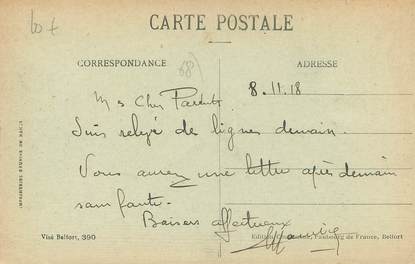 60 f
CARTE POSTALE
CORRESPONDANCE
(68)
ADRESSE
8.11.18
Mes Chers Parents
Suis relevé de lignes demain.
Vous aurez une lettre après demain
sans faute.
Baisers affectueux
Maurice
Visé Belfort, 390
Edition Faubourg de France, Belfort
IMPRIMERIES REUNIES DE NANCY